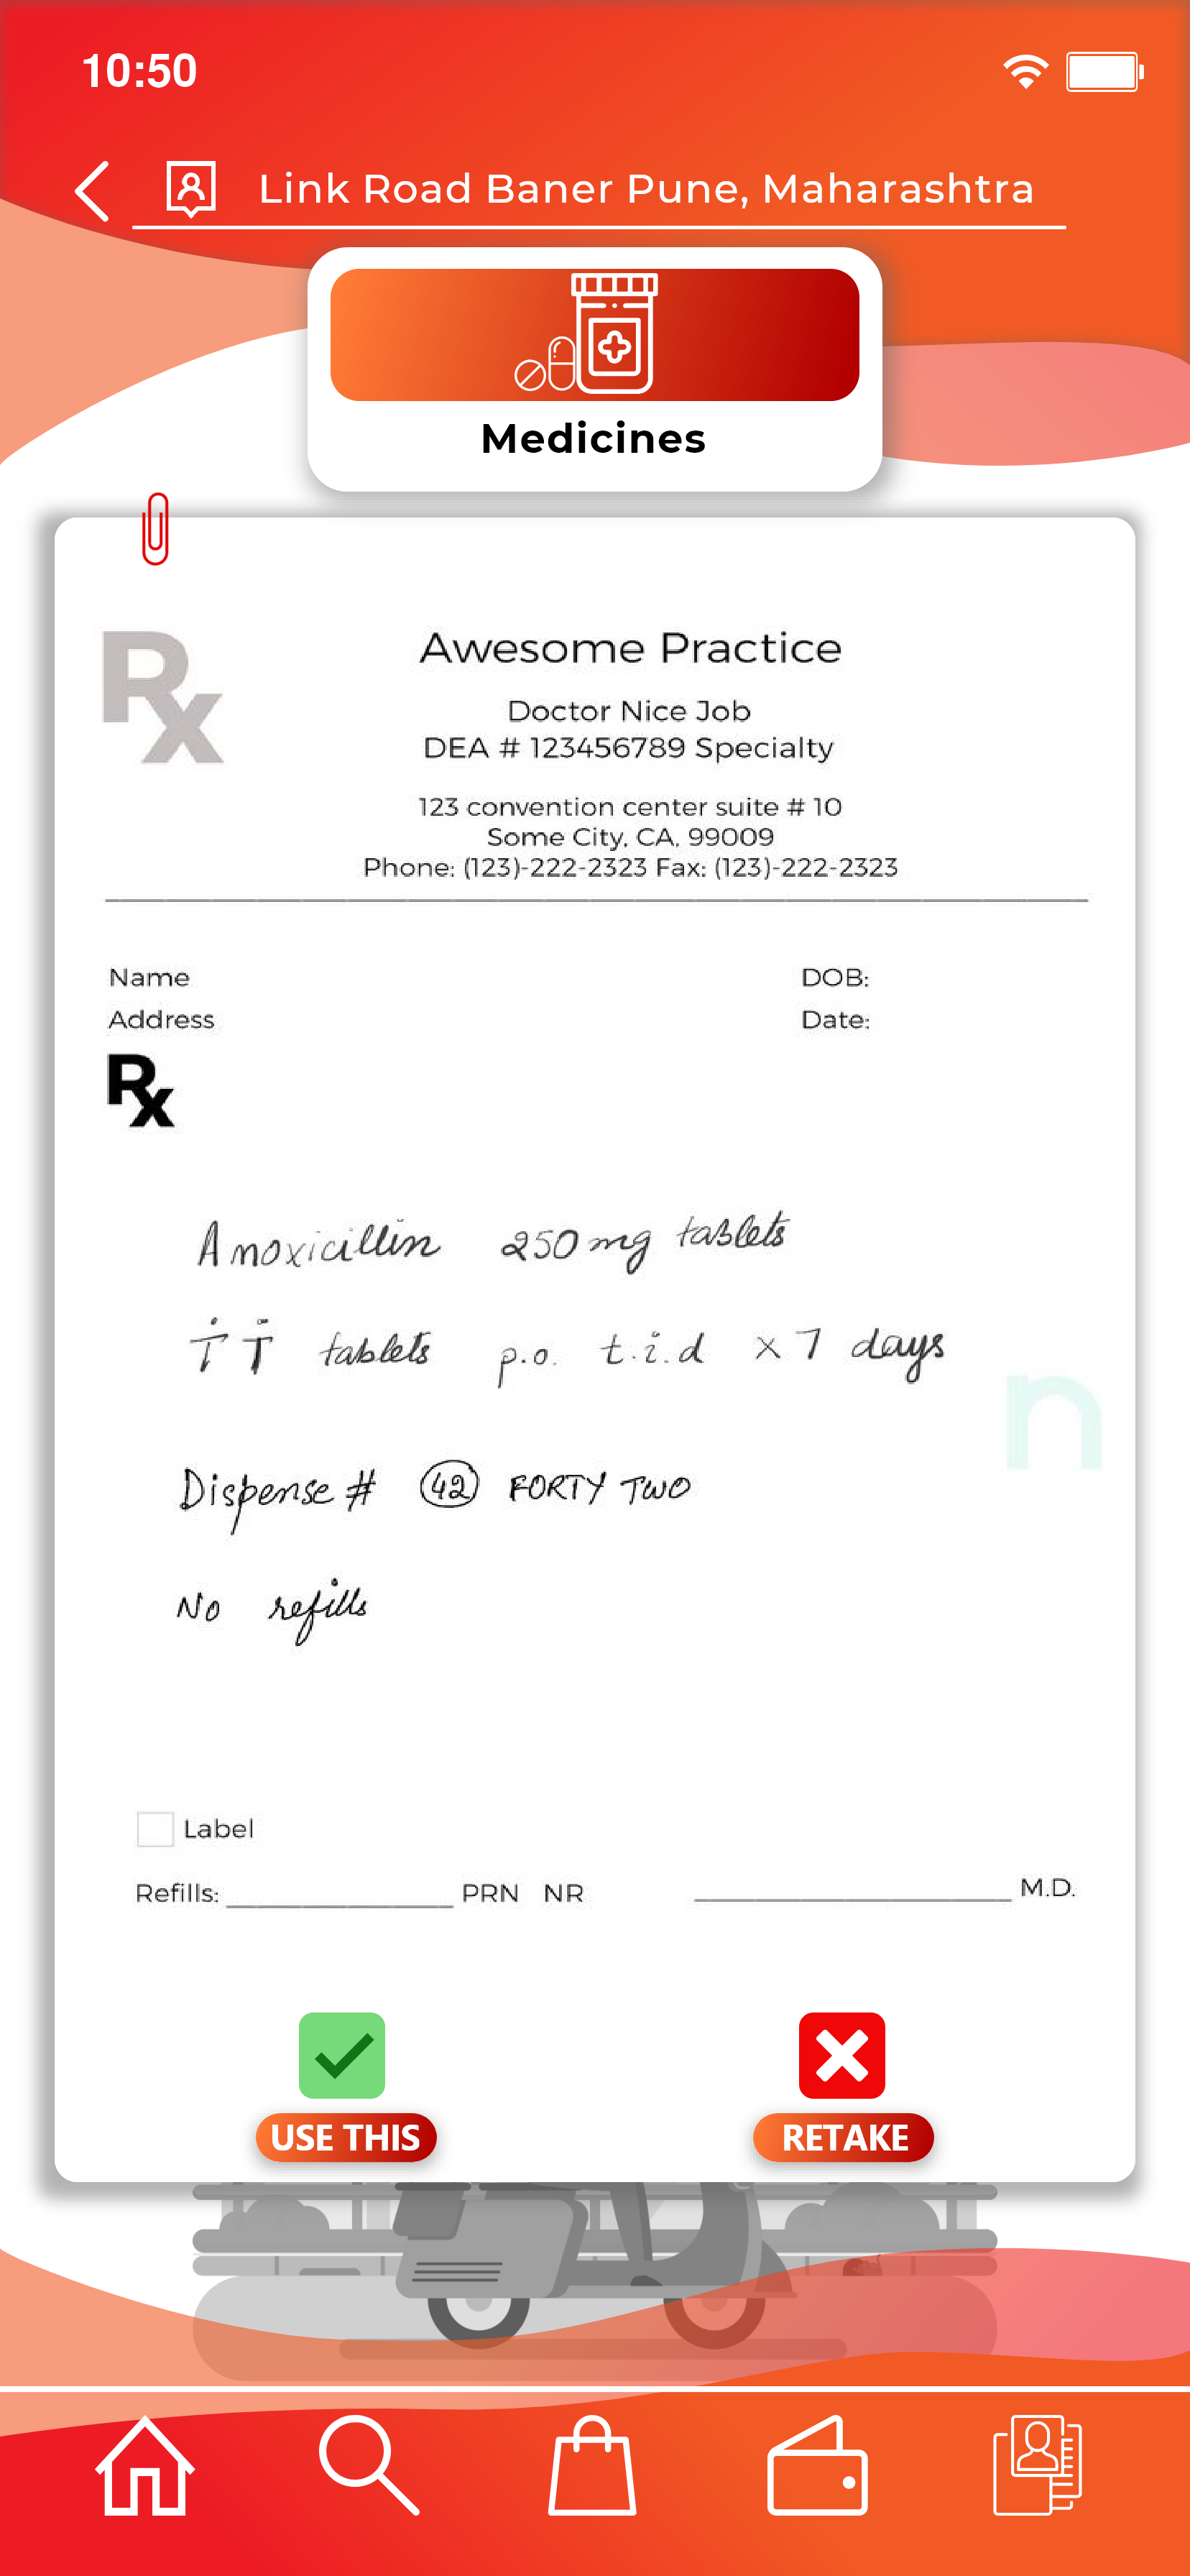 10:50
Link Road Baner Pune, Maharashtra
Medicines
Rx
Awesome Practice
Doctor Nice Job
DEA # 123456789 Specialty
123 convention center suite # 10
Some City, CA, 99009
Phone: (123)-222-2323 Fax: (123)-222-2323
Name DOB:
Address Date:
Rx
Amoxicillin 250 mg tablets
i i tablets p.o. t.i.d x 7 days
n
Dispense # 42 FORTY TWO
No refills
Label
Refills: PRN NR M.D.
USE THIS RETAKE